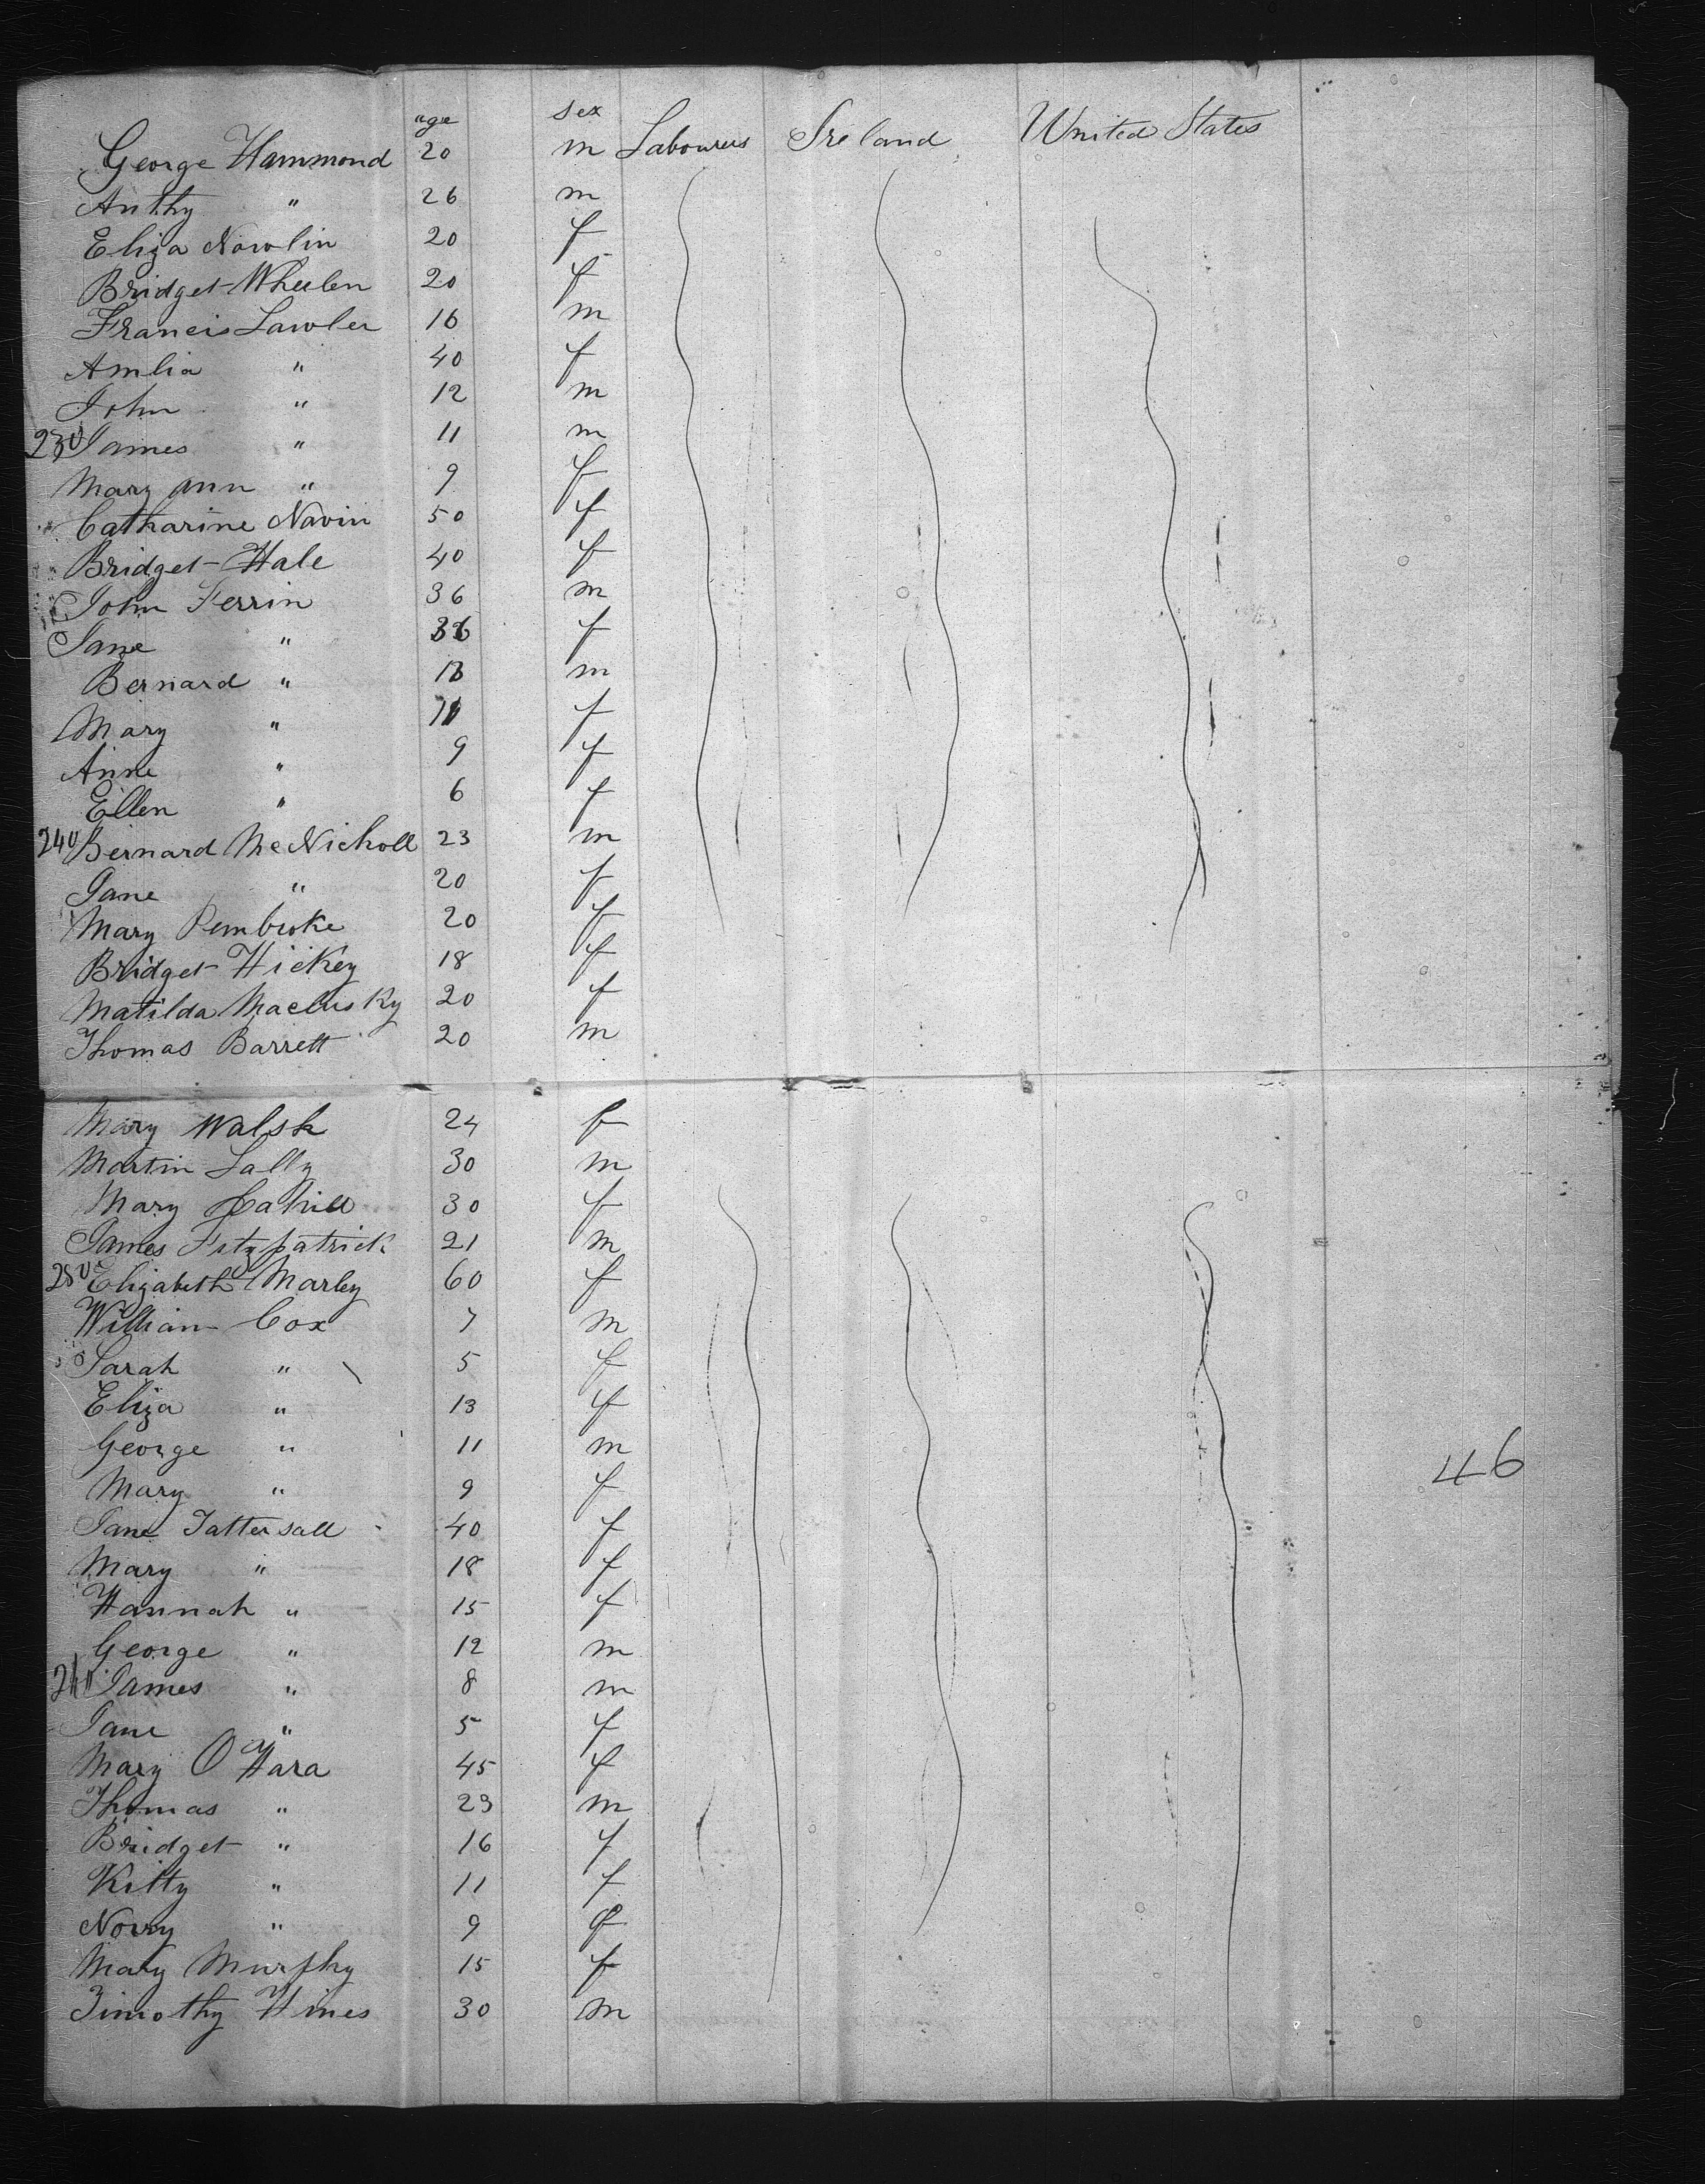 age sex
George Hammond 20 m Labourers Ireland United States
Anthy " 26 m
Eliza Nowlin 20 f
Bridget Wheelen 20 f
Francis Lawler 16 m
Amlia " 40 f
John " 12 m
230 James " 11 m
Mary Ann " 9 f
Catharine Navin 50 f
Bridget Hale 40 f
John Ferrin 36 m
Jane " 36 f
Bernard " 13 m
Mary " 11 f
Anne " 9 f
Ellen " 6 f
240 Bernard McNicholl 23 m
Jane " 20 f
Mary Pembroke 20 f
Bridget Hickey 18 f
Matilda Maclusky 20 f
Thomas Barrett 20 m
Mary Walsh 24 f
Martin Lally 30 m
Mary Cahill 30 f
James Fitzpatrick 21 m
250 Elizabeth Marley 60 f
William Cox 7 m
Sarah " 5 f
Eliza " 13 f
George " 11 m
Mary " 9 f
46
Jane Tattersall 40 f
Mary " 18 f
Hannah " 15 f
George " 12 m
260 James " 8 m
Jane " 5 f
Mary O'Hara 45 f
Thomas " 23 m
Bridget " 16 f
Kitty " 11 f
Novry " 9 f
Mary Murphy 15 f
Timothy Hines 30 m